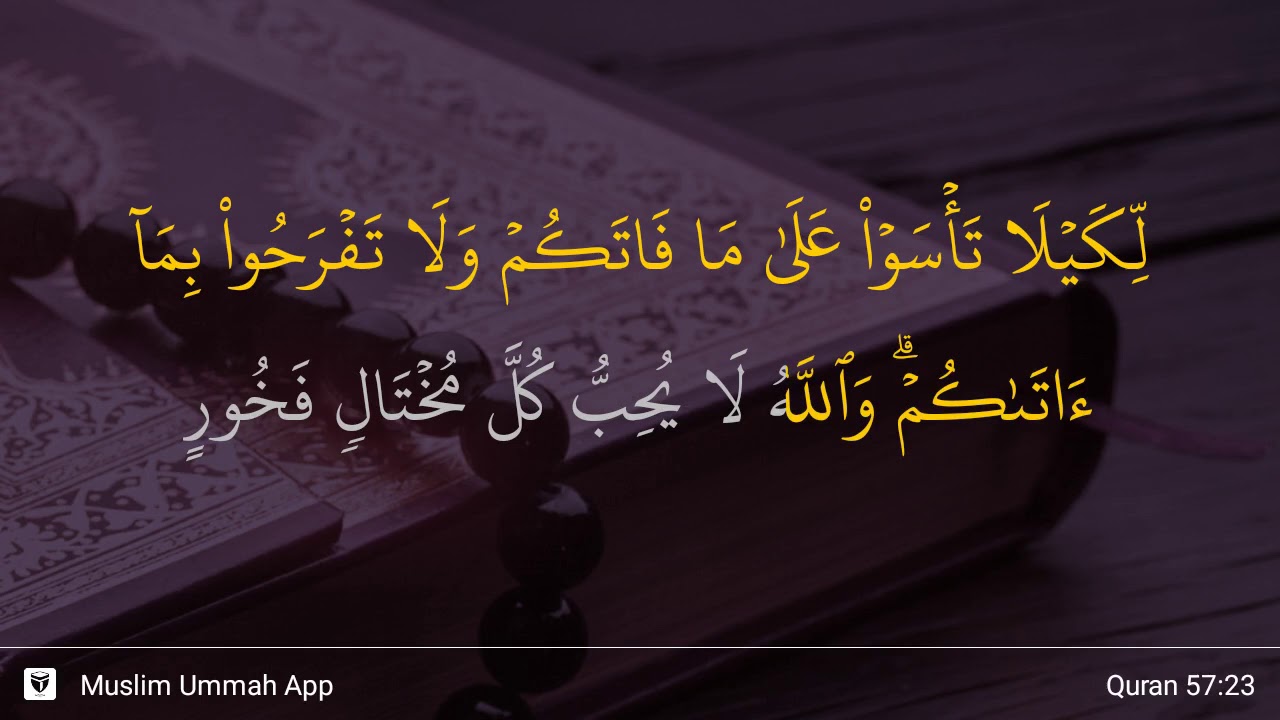 لِّكَيۡلَا تَأۡسَوۡاْ عَلَىٰ مَا فَاتَكُمۡ وَلَا تَفۡرَحُواْ بِمَآ
ءَاتَىٰكُمۡۗ وَٱللَّهُ لَا يُحِبُّ كُلَّ مُخۡتَالٖ فَخُورٍ
Muslim Ummah App
Quran 57:23